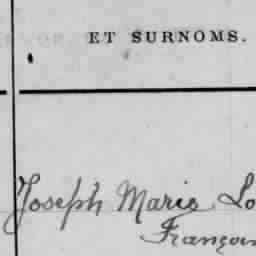 ET SURNOMS.
Joseph Marie Lo
Françoi